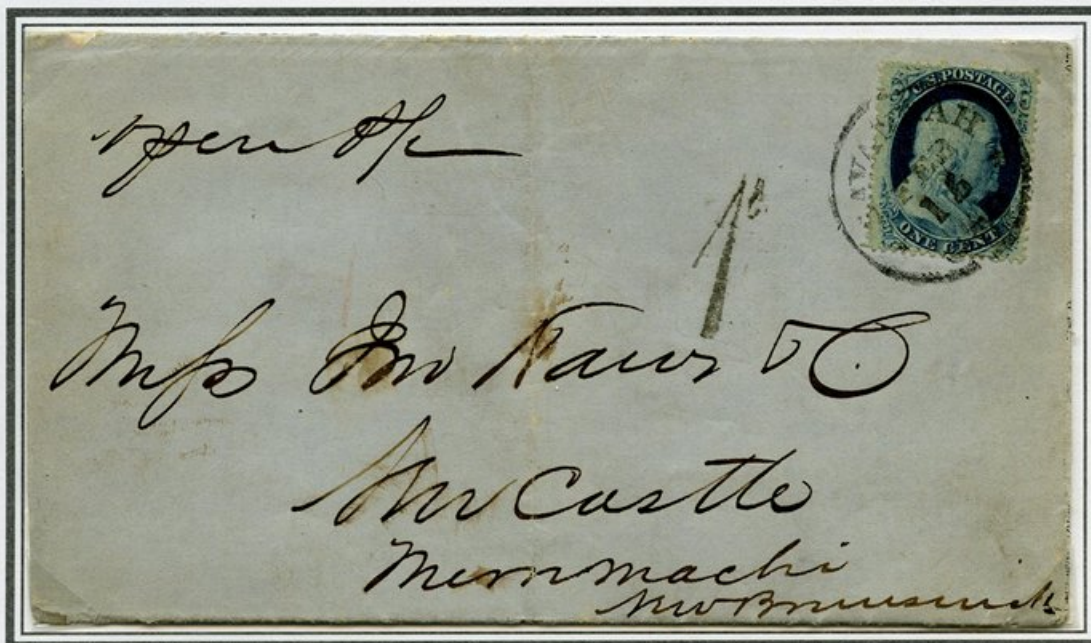 U.S. POSTAGE
SAVANNAH
18
ONE CENT
1c
Open
Messrs Jno Haws & Co
New Castle
Merrimachi
New Brunswick